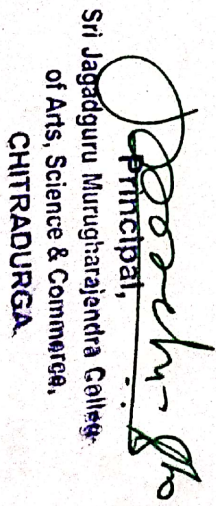 Principal,
Sri Jagadguru Murugharajendra College
of Arts, Science & Commerce,
CHITRADURGA